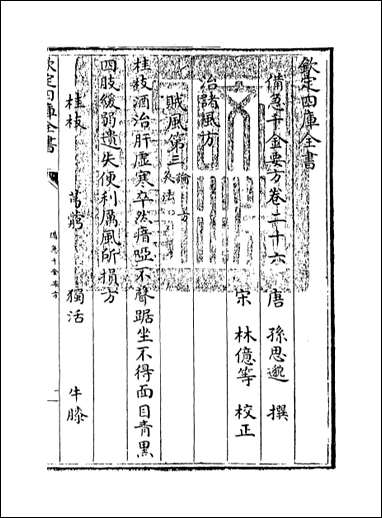 欽定四庫全書
備急千金要方卷二十六
唐 孫思邈 撰
宋 林億等 校正
治諸風方
賊風第三
桂枝酒治肝虛寒卒然瘖啞不聲踞坐不得面目青黑
四肢緩弱遺失便利厲風所損方
桂枝 芎藭 獨活 牛膝
欽定四庫全書
備急千金要方